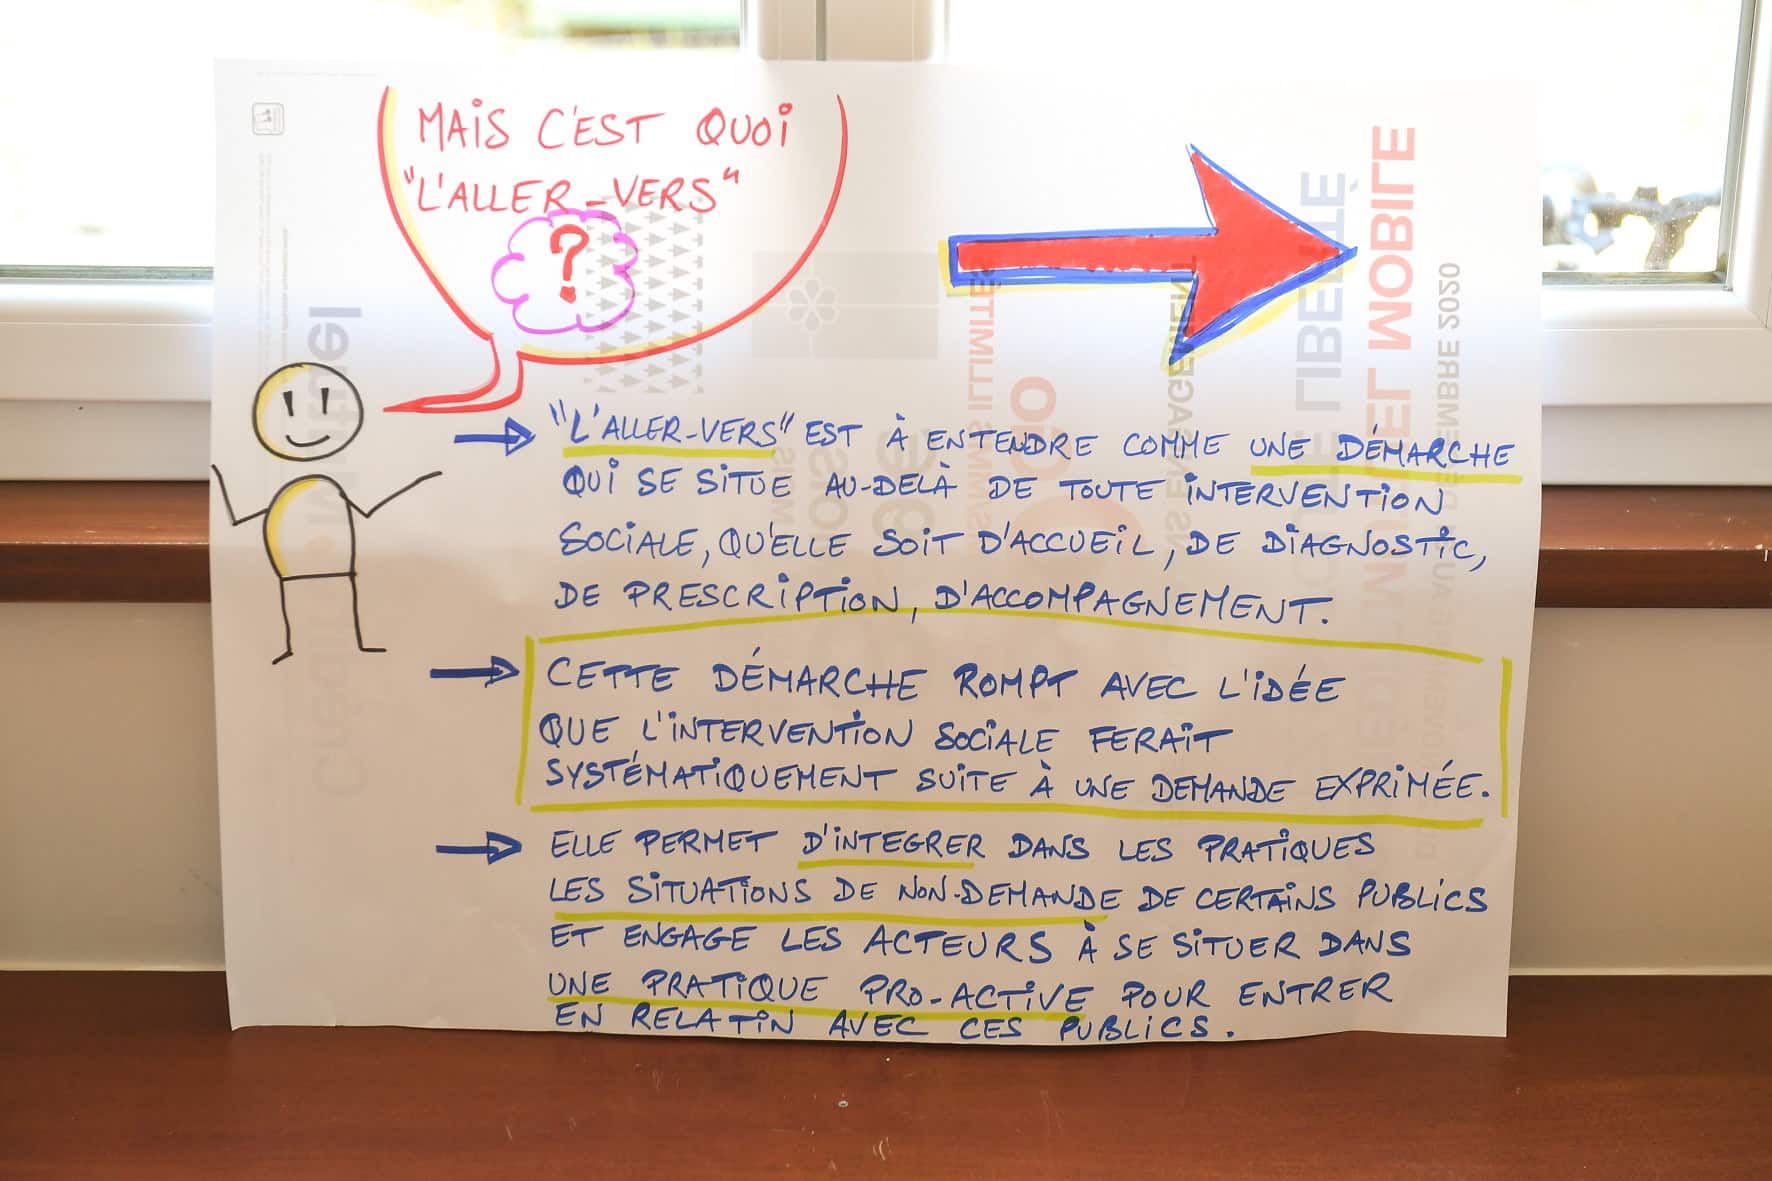 MAIS C'EST QUOI
"L'ALLER-VERS"
?
"L'ALLER-VERS" EST À ENTENDRE COMME UNE DÉMARCHE
QUI SE SITUE AU-DELÀ DE TOUTE INTERVENTION
SOCIALE, QU'ELLE SOIT D'ACCUEIL, DE DIAGNOSTIC,
DE PRESCRIPTION, D'ACCOMPAGNEMENT.
CETTE DÉMARCHE ROMPT AVEC L'IDÉE
QUE L'INTERVENTION SOCIALE FERAIT
SYSTÉMATIQUEMENT SUITE À UNE DEMANDE EXPRIMÉE.
ELLE PERMET D'INTEGRER DANS LES PRATIQUES
LES SITUATIONS DE NON-DEMANDE DE CERTAINS PUBLICS
ET ENGAGE LES ACTEURS À SE SITUER DANS
UNE PRATIQUE PRO-ACTIVE POUR ENTRER
EN RELATIN AVEC CES PUBLICS.
Crédit Mutuel
SMS ILLIMITÉS
LIBERTÉ
MOBILE